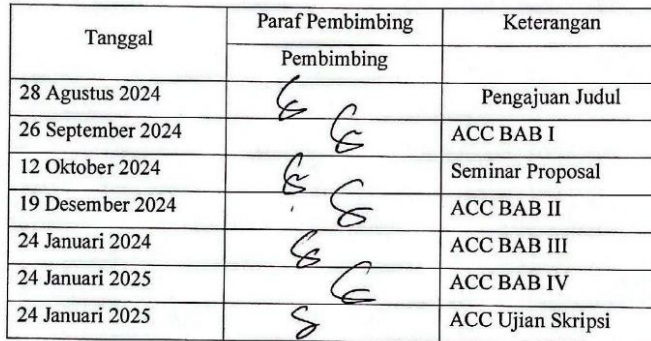 Tanggal Paraf Pembimbing Keterangan
Pembimbing
28 Agustus 2024 Pengajuan Judul
26 September 2024 ACC BAB I
12 Oktober 2024 Seminar Proposal
19 Desember 2024 ACC BAB II
24 Januari 2024 ACC BAB III
24 Januari 2025 ACC BAB IV
24 Januari 2025 ACC Ujian Skripsi